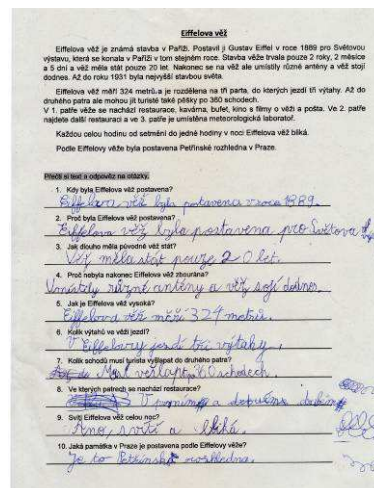 Eiffelova věž
Eiffelova věž je známá stavba v Paříži. Postavil ji Gustav Eiffel v roce 1889 pro Světovou
výstavu, která se konala v Paříži v tom stejném roce. Stavba věže trvala pouze 2 roky, 2 měsíce
a 5 dní a věž měla stát pouze 20 let. Nakonec se na věž ale umístily různé antény a věž stojí
dodnes. Až do roku 1931 byla nejvyšší stavbou světa.
Eiffelova věž měří 324 metrů a je rozdělena na tři parta, do kterých jezdí tři výtahy. Až do
druhého patra ale mohou jít turisté také pěšky po 360 schodech.
V 1. patře věže se nachází restaurace, kavárna, bufet, kino s filmy o věži a pošta. Ve 2. patře
najdete další restauraci a ve 3. patře je umístěna meteorologická laboratoř.
Každou celou hodinu od setmění do jedné hodiny v noci Eiffelova věž bliká.
Podle Eiffelovy věže byla postavena Petřínské rozhledna v Praze.
Přečti si text a odpověz na otázky.
1. Kdy byla Eiffelova věž postavena?
Eiffelova věž byla postavena v roce 1889.
2. Proč byla Eiffelova věž postavena?
Eiffelova věž byla postavena pro Světova
3. Jak dlouho měla původně věž stát?
Věž měla stát pouze 20 let.
4. Proč nebyla nakonec Eiffelova věž zbourána?
různé antény a věž sojí dodnes.
5. Jak je Eiffelova věž vysoká?
Eiffelova věž měří 324 metrů.
6. Kolik výtahů ve věži jezdí?
V Eiffelovy jezdí tři výtahy.
7. Kolik schodů musí turista vyšlapat do druhého patra?
360 schodech.
8. Ve kterých patrech se nachází restaurace?
V prvním a
9. Svítí Eiffelova věž celou noc?
Ano, svítí a bliká.
10. Jaká památka v Praze je postavena podle Eiffelovy věže?
Je to Petřínská rozhledna.